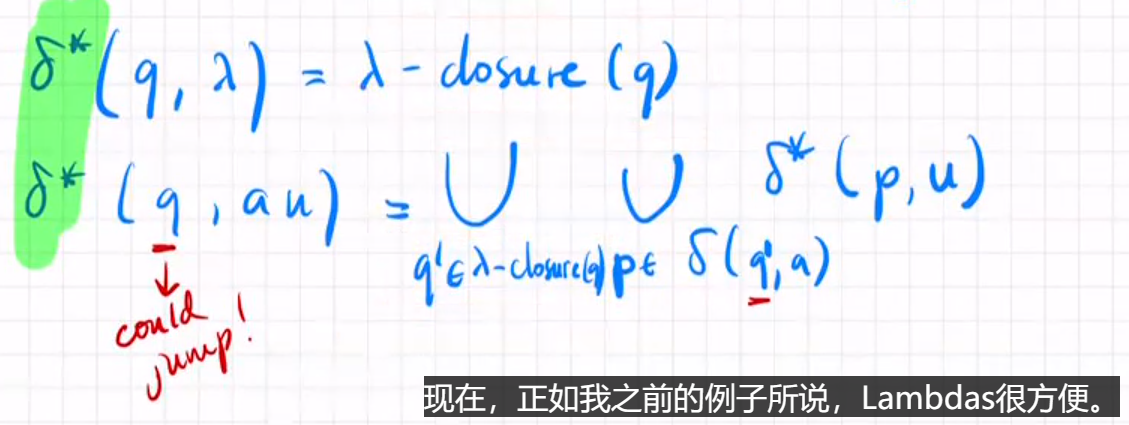 δ*(q, λ) = λ-closure(q)
δ*(q, au) = ∪ ∪ δ*(p, u)
q'∈λ-closure(q) p∈ δ(q', a)
could
jump!
现在，正如我之前的例子所说，Lambdas很方便。